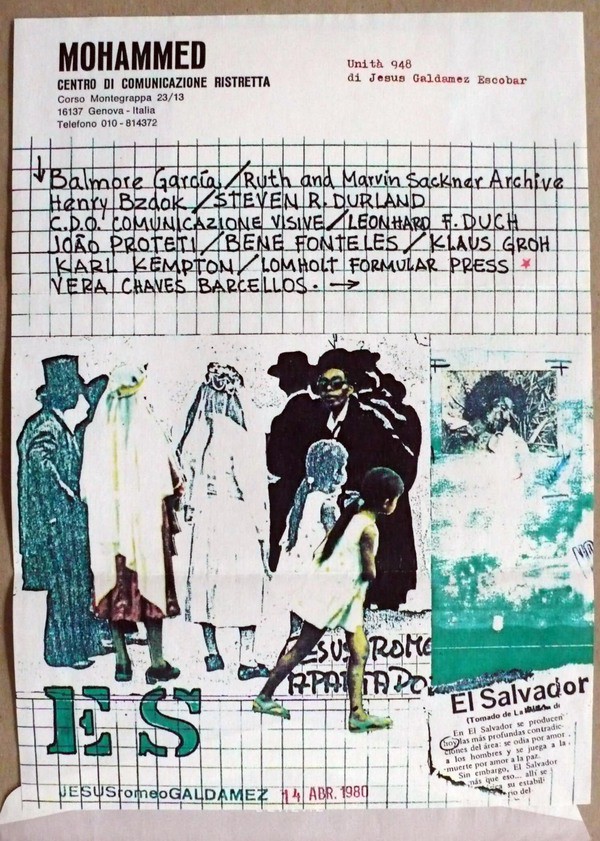 MOHAMMED
CENTRO DI COMUNICAZIONE RISTRETTA
Corso Montegrappa 23/13
16137 Genova - Italia
Telefono 010 - 814372
Unità 948
di Jesus Galdamez Escobar
↓ Balmore García / Ruth and Marvin Sackner Archive
Henry Bzdok / STEVEN R. DURLAND
C.D.O. COMUNICAZIONE VISIVE / LEONHARD F. DUCH
JOÃO PROTETI / BENE FONTELES / KLAUS GROH
KARL KEMPTON / LOMHOLT FORMULAR PRESS *
VERA CHAVES BARCELLOS. →
ESUS ROME
APARTADO
ES
JESUSromeoGALDAMEZ 14 ABR. 1980
El Salvador
(Tomado de La di
En El Salvador se producen
hoy las más profundas contradic-
ciones del área: se odia por amor
a los hombres y se juega a la
muerte por amor a la paz.
Sin embargo, El Salvador
más que eso... allí se
su estabili
rio del